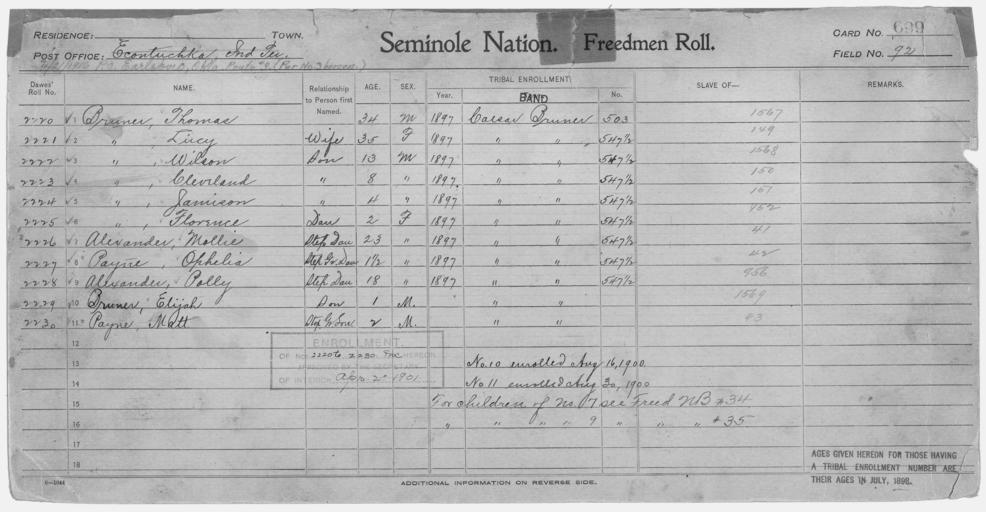 699
RESIDENCE: TOWN.
POST OFFICE: Econtuchka Ind Ter.
Seminole Nation. Freedmen Roll.
CARD NO.
FIELD NO. 92
Dawes' Roll No. NAME. Relationship to Person first Named. AGE. SEX. TRIBAL ENROLLMENT Year. BAND No. SLAVE OF— REMARKS.
2220 1 Bruner, Thomas 34 M 1897 Caesar Bruner 503 1567
2221 2 " , Lucy Wife 35 F 1897 " " 547½ 149
2222 3 " , Wilson Son 13 M 1897 " " 547½ 1568
2223 4 " , Cleveland " 8 " 1897 " " 547½ 150
2224 5 " , Jamison " 4 " 1897 " " 547½
2225 6 " , Florence Dau 2 F 1897 " " 547½
2226 7 Alexander, Mollie Step Dau 23 " 1897 " " 547½ 41
2227 8 Payne, Ophelia Step Gr. Dau 1½ " 1897 " " 547½ 42
2228 9 Alexander, Polly Step Dau 18 " 1897 " " 547½
2229 10 Bruner, Elijah Son 1 M. " " 1569
2230 11 Payne, Matt Step Gr Son 2 M. " " 43
12
ENROLLMENT
OF NOS. 2220 to 2230 Inc HEREON
APPROVED BY THE SECRETARY
OF INTERIOR Apr. 2 1901
13 No. 10 enrolled Aug 16, 1900.
14 No 11 enrolled Aug 30, 1900
15 For children of No. 7 see Freed NB #34
16 " " " " 9 " " " #35
17
18
AGES GIVEN HEREON FOR THOSE HAVING
A TRIBAL ENROLLMENT NUMBER ARE
THEIR AGES IN JULY, 1898.
6—1044
ADDITIONAL INFORMATION ON REVERSE SIDE.